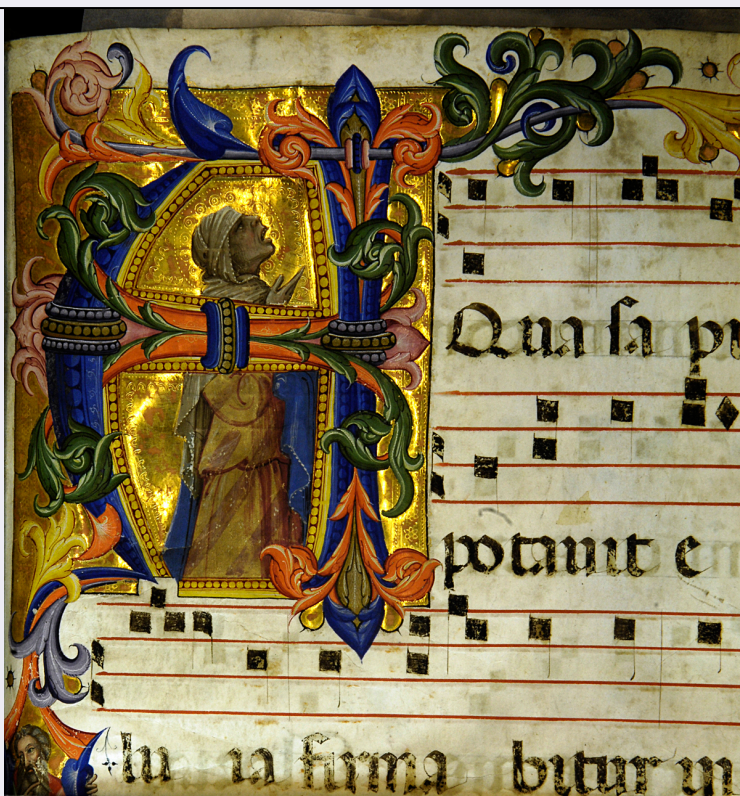 AQua sa pi
potauit e
lu ia firma bitur in